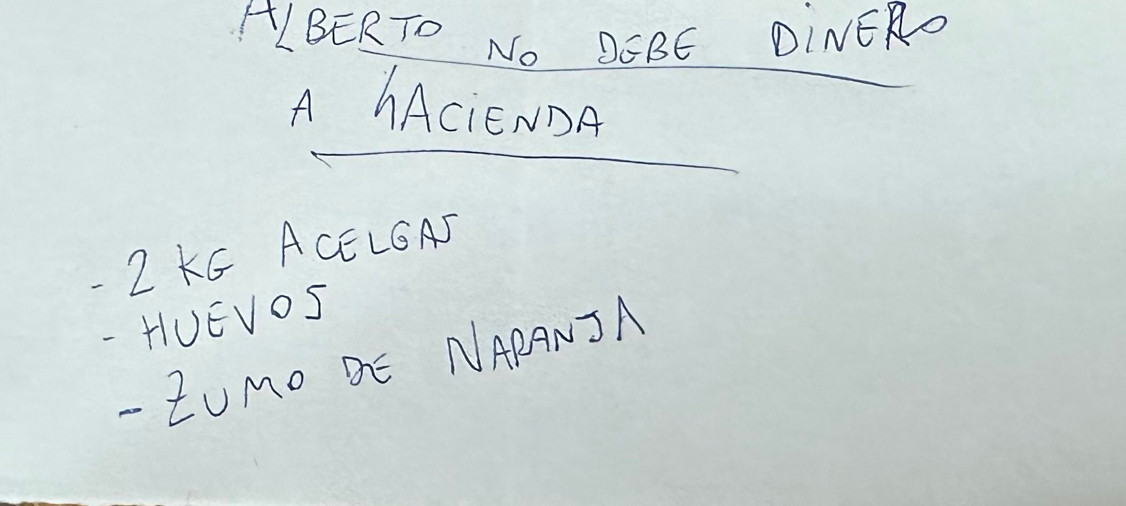 ALBERTO NO DEBE DINERO
A hACiENDA
- 2 KG ACELGAS
- HUEVOS
- ZUMO DE NARANJA